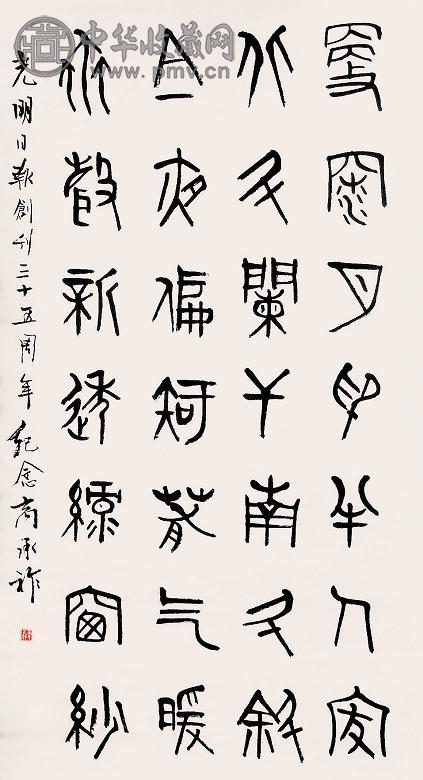 中华收藏网
www.pmv.cn
更深月色半人家
北斗闌干南斗斜
今夜偏知春气暖
虫聲新透綠窗紗
光明日報創刊三十五周年紀念商承祚